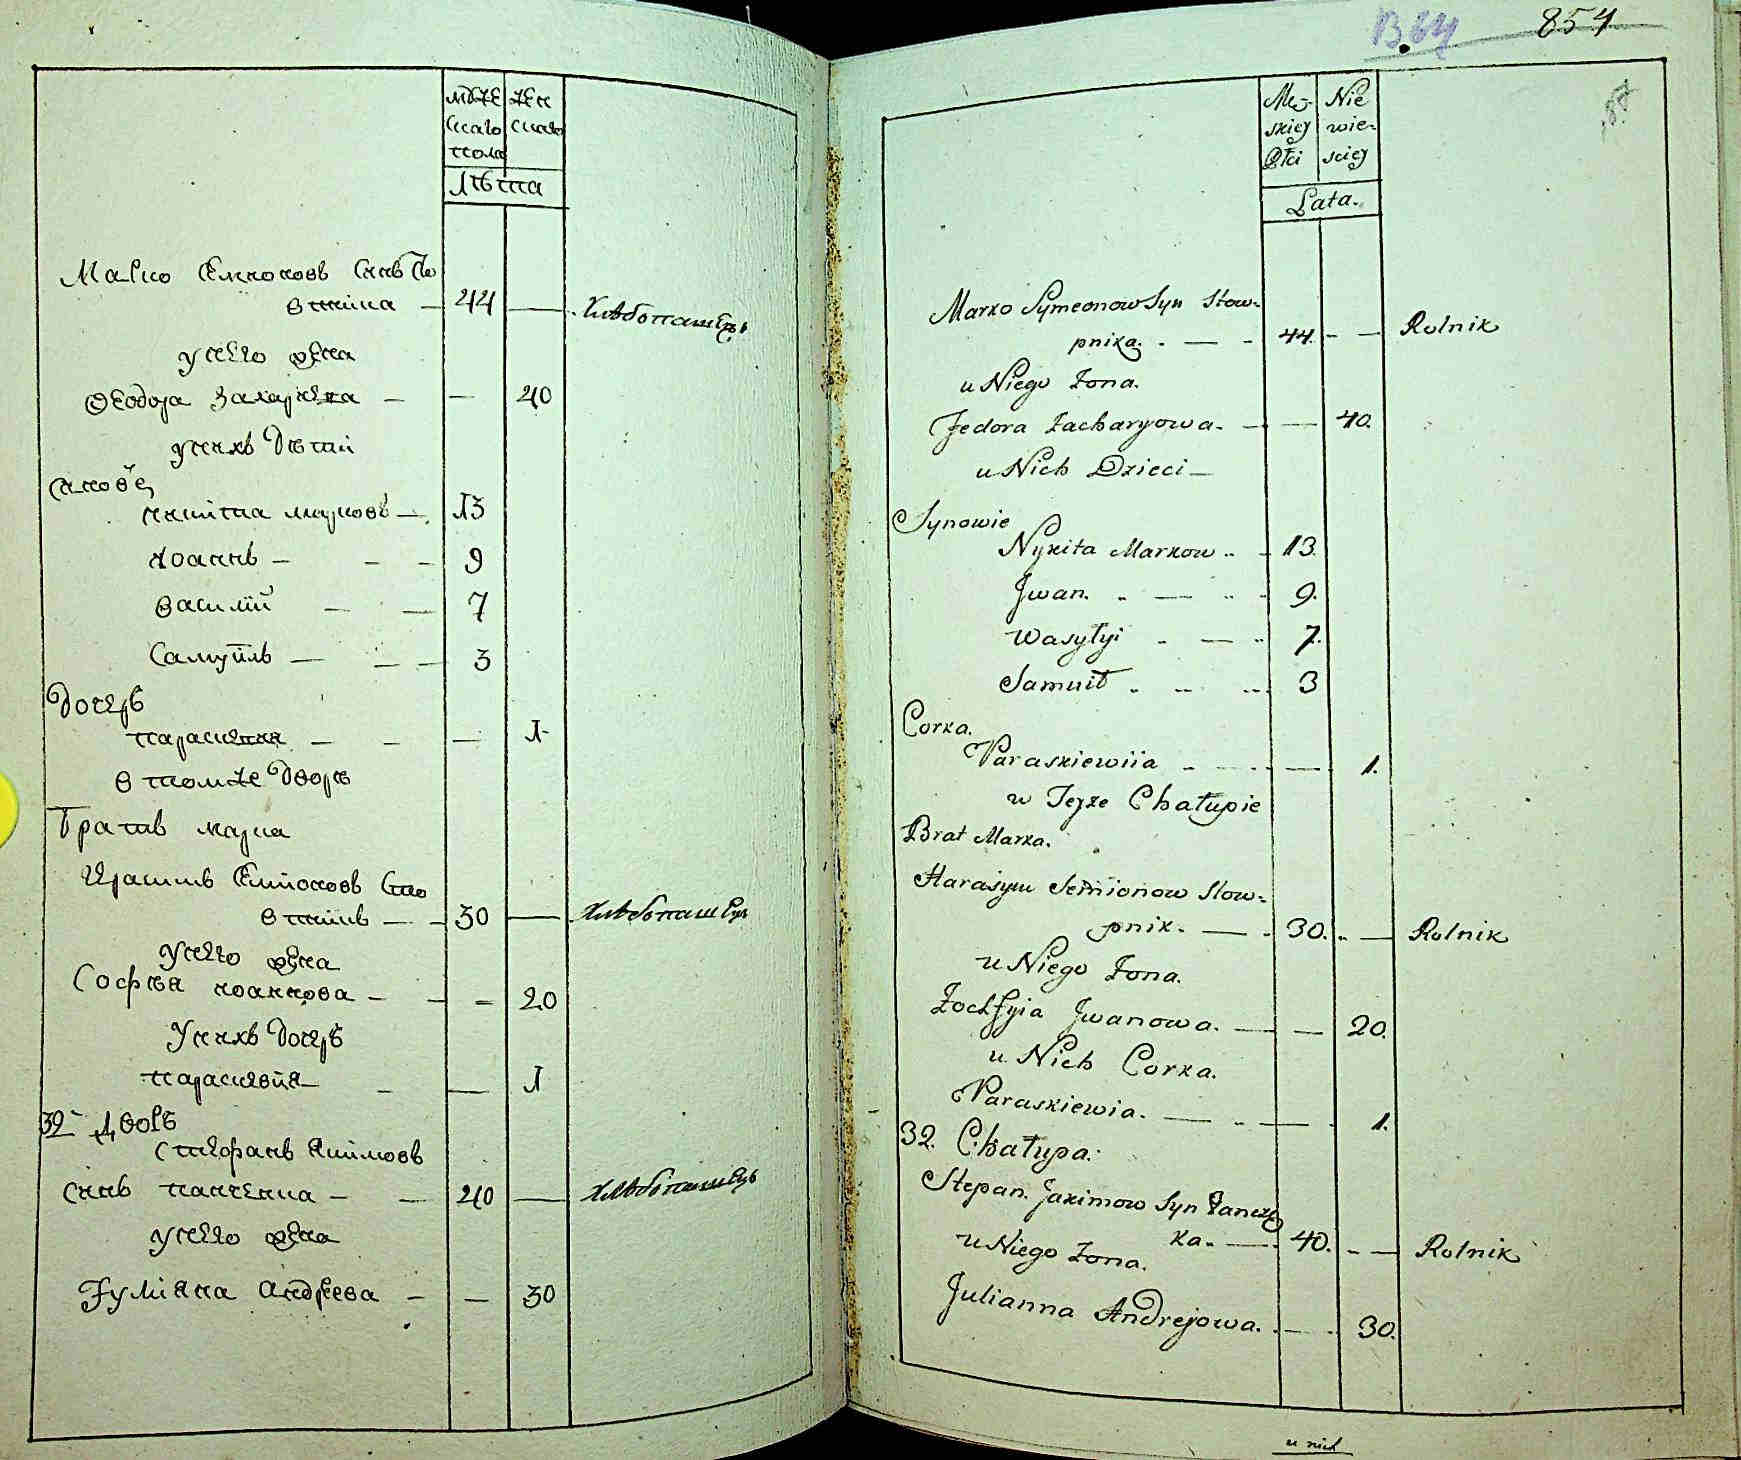 В64 854
87
мѫже жен
скаго скаго
пола
лѣта
Марко Семионовъ синъ Сто
впника — 44 — Хлѣбопашецъ
у него жена
Феодора Захариева — — 40
у нихъ дѣтии
синовѣ
никита марковъ — 13
иоаннъ — — — 9
василіи — — 7
Самуилъ — — — 3
дочерь
параскевия — — — 1
в томже дворѣ
братъ марка
Ираsимъ Семионовъ Сто
впникъ — — 30 — Хлѣбопашецъ
у него жена
Софѣя иоаннова — — — 20
у нихъ дочерь
параскевия — — 1
32 дворъ
стефанъ якимовъ
синъ панченка — — 40 — Хлѣбопашецъ
у него жена
Иулияна андреева — — 30
Mę- Nie
skiey wie-
Płci sciey
Lata.
Marko Symeonow Syn Stow-
pnika. - — - 44. - — Rolnik
u Niego Żona.
Fedora Zacharyowa. — — 40.
u Nich Dzieci —
Synowie
Nykita Markow .. - 13.
Jwan. - — .. - 9.
Wasyłyi - — .. 7.
Samuił . .. ... 3
Corka.
Paraskiewiia - — — 1.
w Teyże Chałupie
Brat Marka.
Harasym Semionow Stow-
pnik. — . 30. . — Rolnik
u Niego Żona.
Zochfyia Jwanowa. — — 20.
u Nich Corka.
Paraskiewia. — .. — . 1.
32. Chałupa.
Stepan. Jakimow Syn Pancze
ka. — . 40. - — Rolnik
u Niego Żona.
Julianna Andrejowa. . — . 30.
u nich